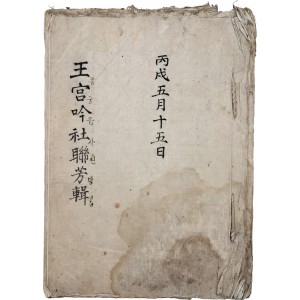 丙戌五月十五日
王宮吟社聯芳輯